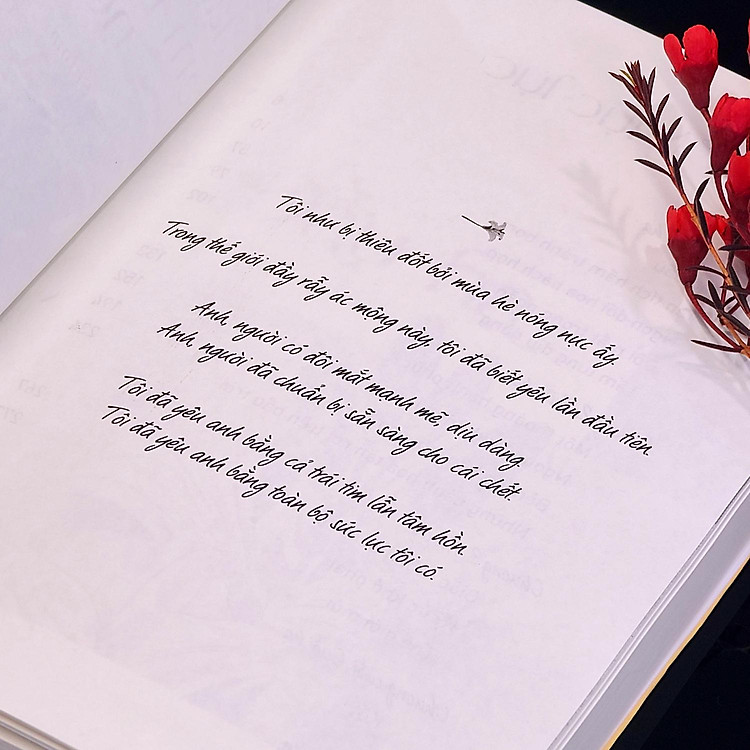 Tôi như bị thiêu đốt bởi mùa hè nóng nực ấy.
Trong thế giới đầy rẫy ác mộng này, tôi đã biết yêu lần đầu tiên.
Anh, người có đôi mắt mạnh mẽ, dịu dàng.
Anh, người đã chuẩn bị sẵn sàng cho cái chết.
Tôi đã yêu anh bằng cả trái tim lẫn tâm hồn.
Tôi đã yêu anh bằng toàn bộ sức lực tôi có.